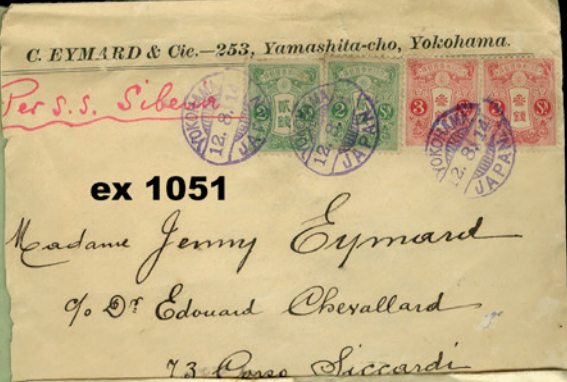 C. EYMARD & Cie.—253, Yamashita-cho, Yokohama.
Per S.S. Siberia
2 貳錢 2 Sn
3 參錢 Sn
YOKOHAMA 12.8.14 JAPAN
YOKOHAMA 12.8.14 JAPAN
YOKOHAMA 12.8.14 JAPAN
ex 1051
Madame Jenny Eymard
c/o Dr Edouard Chevallard
73 Corso Siccardi